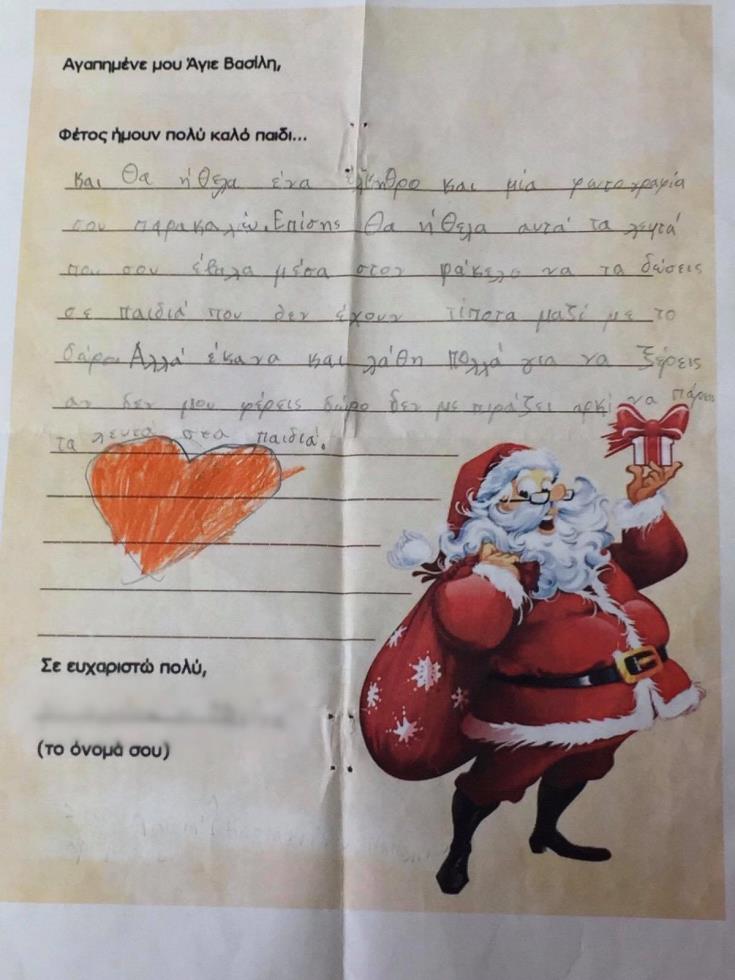 Αγαπημένε μου Άγιε Βασίλη,
Φέτος ήμουν πολύ καλό παιδί...
και Θα ήθελα ένα έλκηθρο και μία φωτογραφία
σου παρακαλώ. Επίσης Θα ήθελα αυτά τα λεφτά
που σου έβαλα μέσα στον φάκελο να τα δώσεις
σε παιδιά που δεν έχουν τίποτα μαζί με το
δώρο. Αλλά έκανα και λάθη πολλά για να ξέρεις
αν δεν μου φέρεις δώρο δεν με πιράζει αρκί να πάρεις
τα λευτά στα παιδιά.
Σε ευχαριστώ πολύ,
(το όνομά σου)